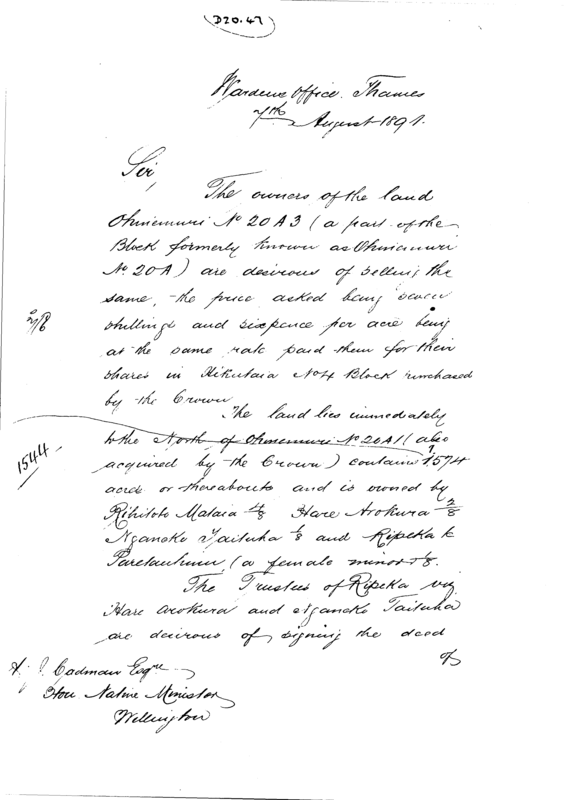 D20.47
Wardens Office. Thames
7th August 1891.
Sir,
The owners of the land
Ohinemuri No 20A3 (a part of the
Block formerly known as Ohinemuri
No. 20A) are desirous of selling the
same, the price asked being seven
shillings and sixpence per acre being
at the same rate paid them for their
shares in Hikutaia No 4 Block purchased
by the Crown
The land lies immediately
to the North of Ohinemuri No 20A1 (also
acquired by the Crown) contains 1574
1544
acres or thereabouts and is owned by
Rihitoto Mataia 4/8 Hare Arokura 2/8
Nganeko Taituha 1/8 and Ripeka
(a female minor 1/8.
The Trustees of Ripeka viz
Hare Arokura and Nganeko Taituha
are desirous of signing the deed
of
A. J. Cadman Esqre
Hon Native Minister
Wellington